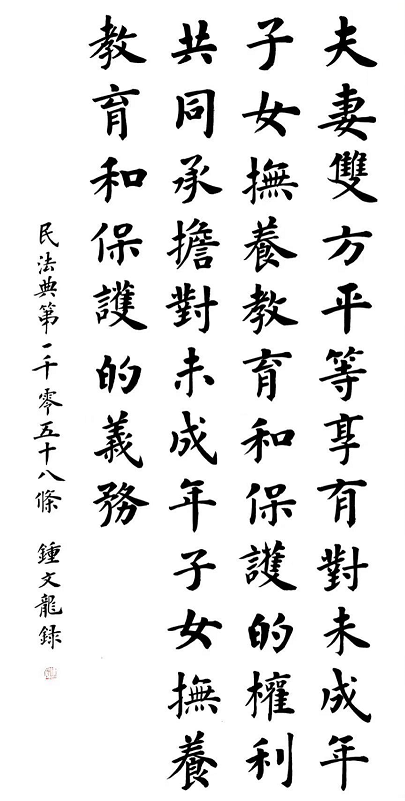 夫妻雙方平等享有對未成年
子女撫養教育和保護的權利
共同承擔對未成年子女撫養
教育和保護的義務
民法典第一千零五十八條 鍾文龍録